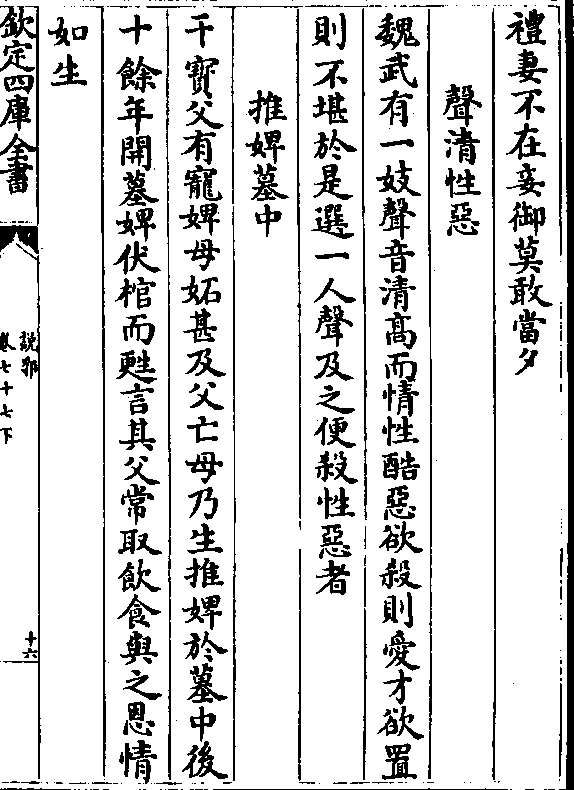 禮妻不在妾御莫敢當夕
聲清性惡
魏武有一妓聲音清髙而情性酷惡欲殺則愛才欲置
則不堪於是選一人聲及之便殺性惡者
推婢墓中
干寳父有寵婢母妬甚及父亡母乃生推婢於墓中後
十餘年開墓婢伏棺而甦言其父常取飲食與之恩情
如生
欽定四庫全書
說郛
卷七十七下
十六